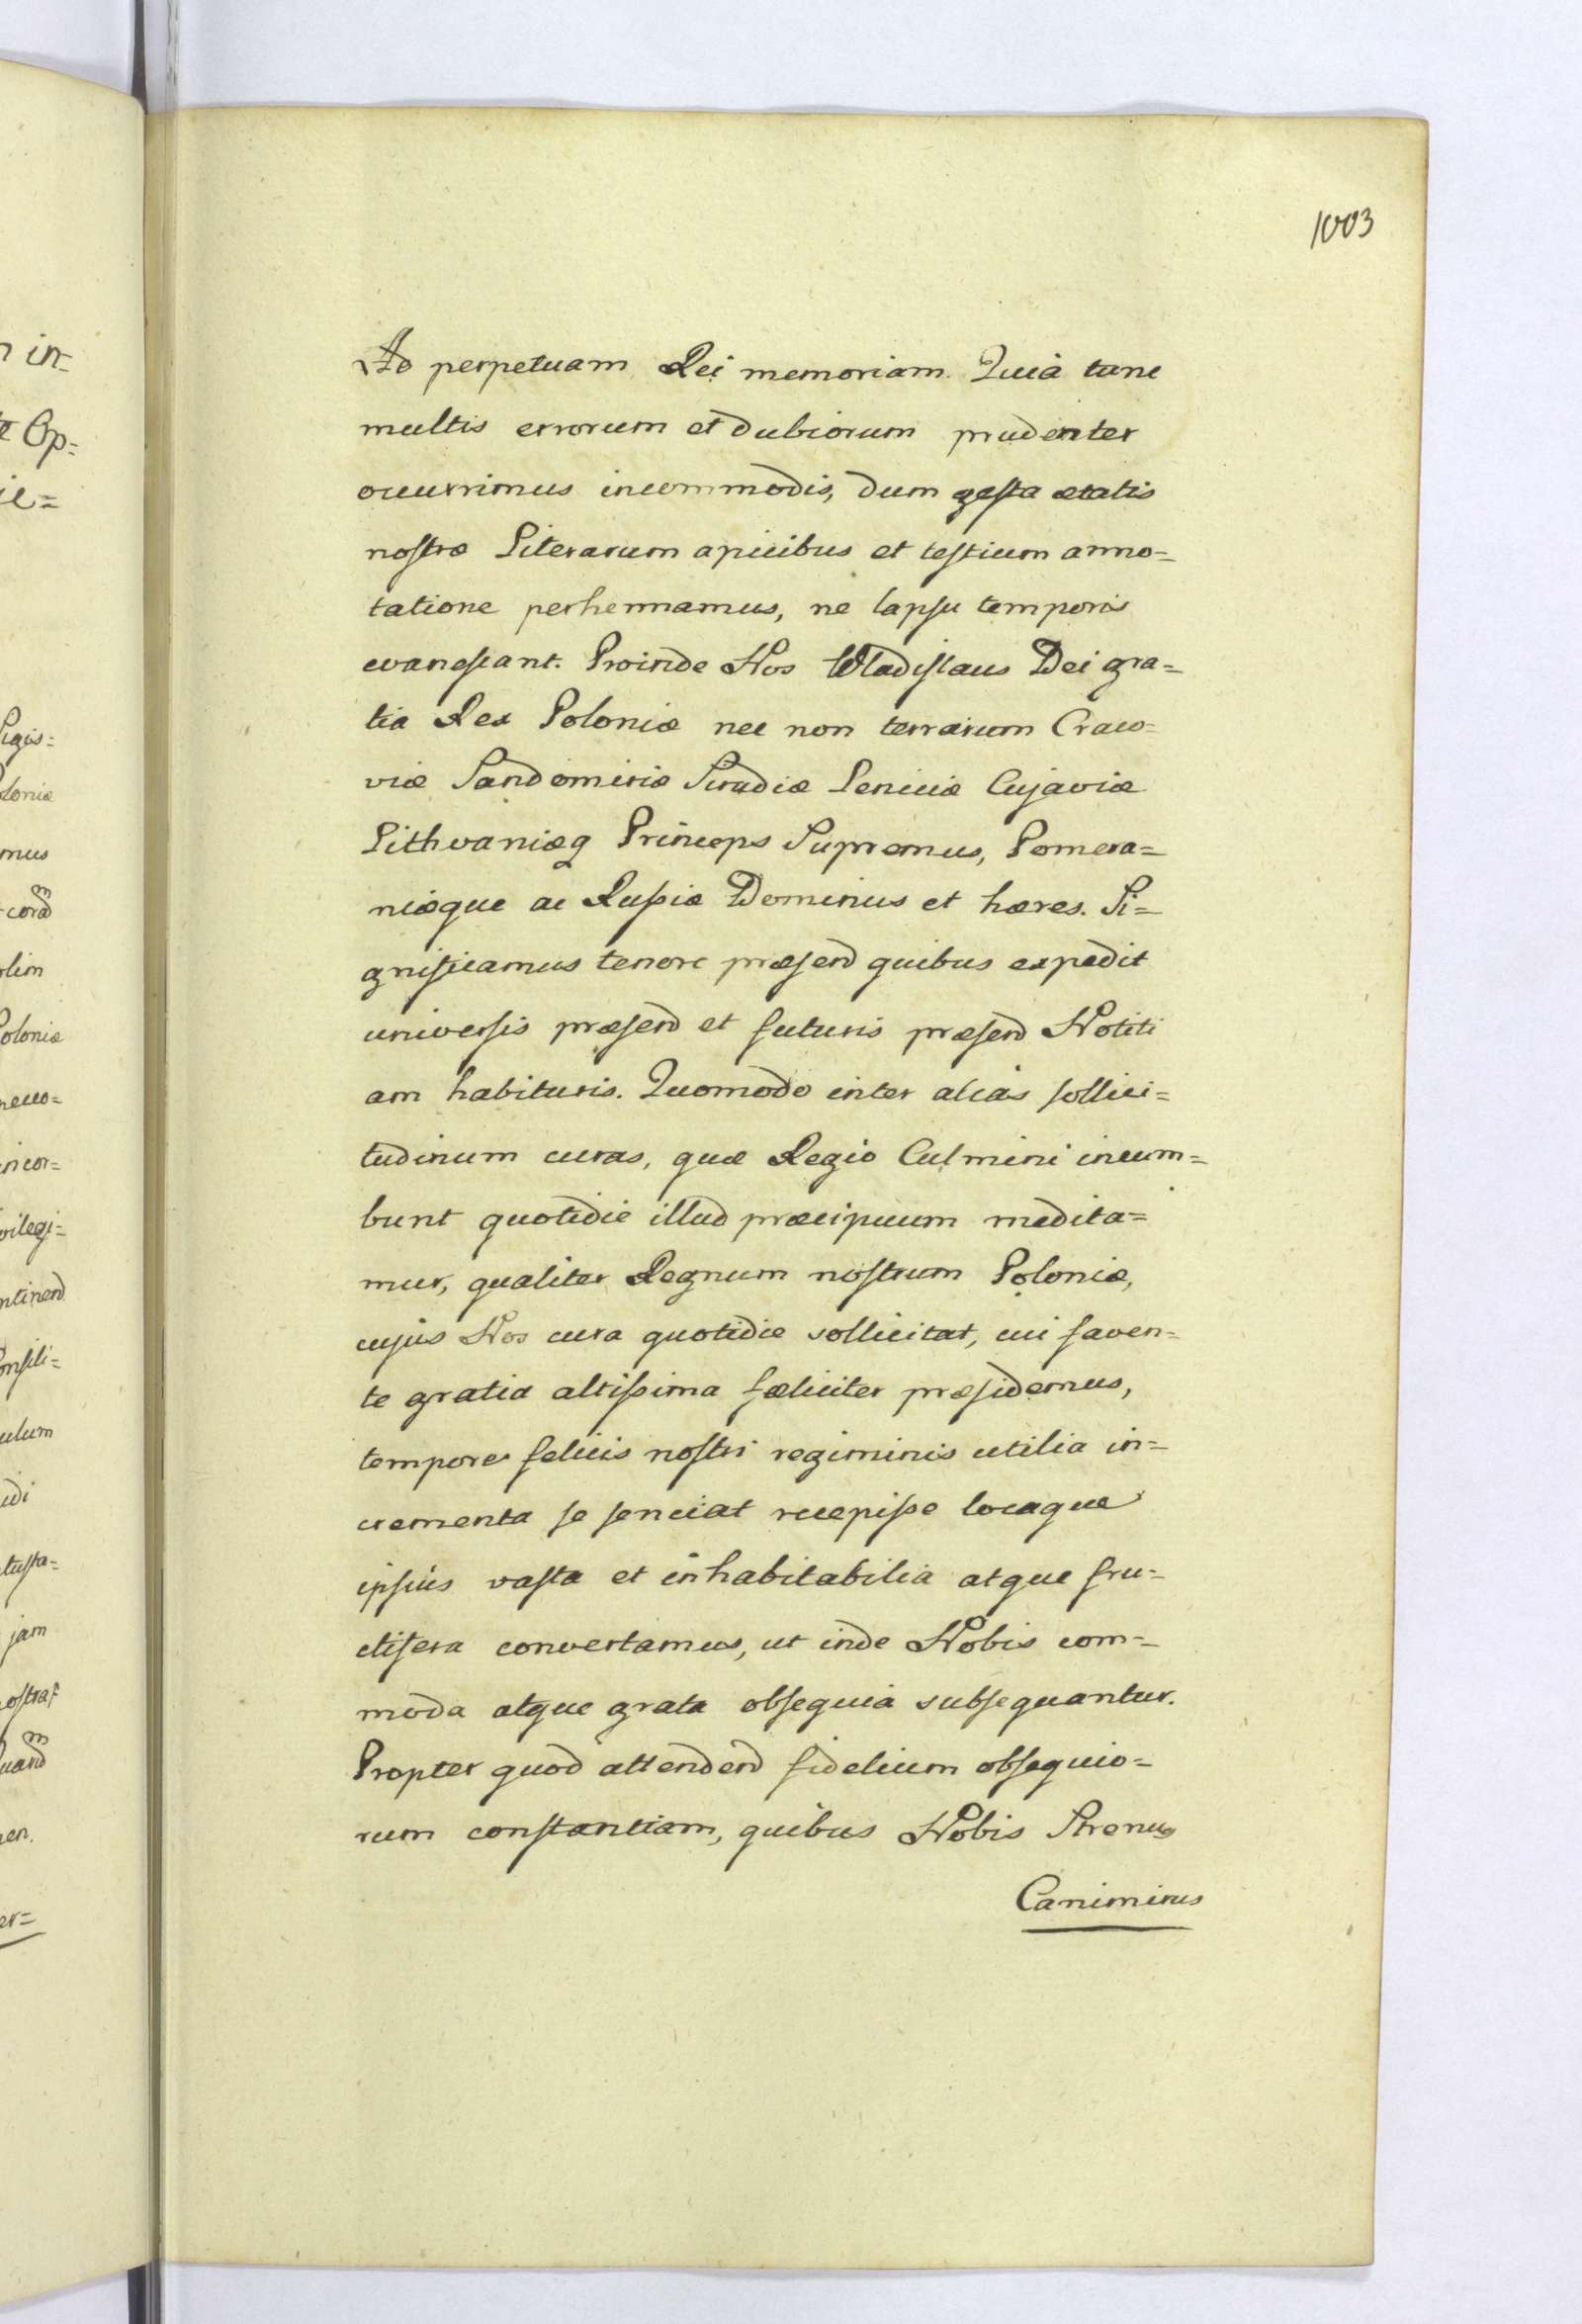 1003
Ad perpetuam Rei memoriam. Quia tunc
multis errorum et dubiorum prudenter
occurrimus incommodis, dum gesta ætatis
nostræ Literarum apicibus et testium anno=
tatione perhennamus, ne lapsu temporis
evanescant. Proinde Nos Wladislaus Dei gra=
tia Rex Poloniæ nec non terrarum Craco=
viæ Sandomiriæ Siradiæ Lenciciæ Cujaviæ
Lithvaniæq Princeps Supremus, Pomera=
niæque ac Russiæ Dominus et hæres. Si=
gnificamus tenore præsend quibus expedit
universis præsend et futuris præsend Notiti
am habituris. Quomodo inter alias sollici=
tudinum curas, quæ Regio Culmini incum=
bunt quotidie illud præcipuum medita=
mur, qualiter Regnum nostrum Poloniæ,
cujus Nos cura quotidie sollicitat, cui faven=
te gratia altissima fæliciter præsidemus,
tempore felicis nostri regiminis utilia in=
crementa se senciat recepisse locaque
ipsius vasta et inhabitabilia atque fru=
ctifera convertamus, ut inde Nobis com=
moda atque grata obsequia subsequantur.
Propter quod attendend fidelium obsequio=
rum constantiam, quibus Nobis Strenus
Canimirus
n in=
te Op=
ic=
Sigis=
oloniæ
mus
corad m
olim
Poloniæ
neuo=
incor=
vilegi=
ntinend
Consili=
ulum
idi
tusta=
jam
ostras
quand m
nen.
er=